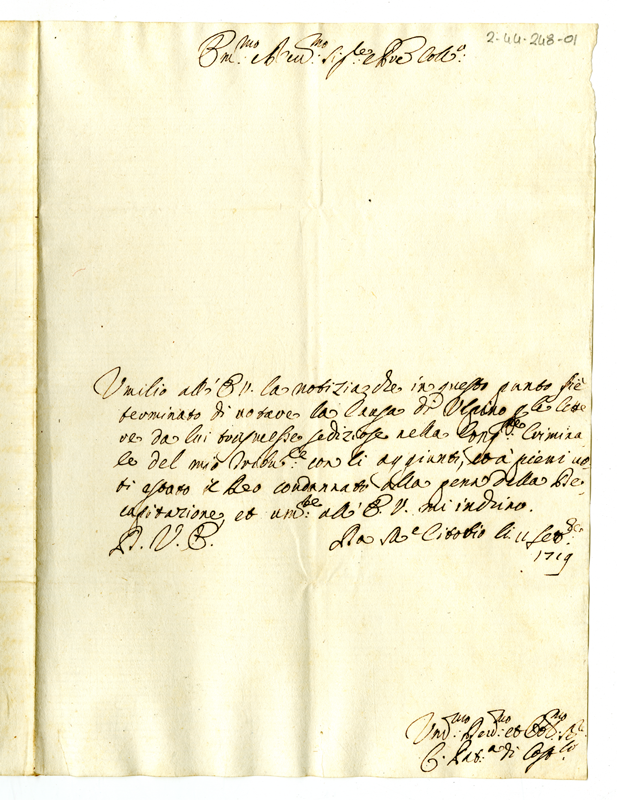 2-44-248-01
Em.mo e Rev.mo Sig.re e Pne Coll.o
Umilio all' E. V. la notizia che in questo punto s'è
terminato di votare la Causa di Volpino p le lette
re da lui trasmesse sediziose nella Cong.ne Crimina
le del mio Tribu.le con li aggiunti, et à pieni vo
ti è stato il Reo condannato alla pena della De-
capitazione, et um.te all' E. V. mi inchino.
D. V. E. Da M.e Citorio li 11 Sett.bre
1719
Um.mo Dev.mo et Obb.mo
C.